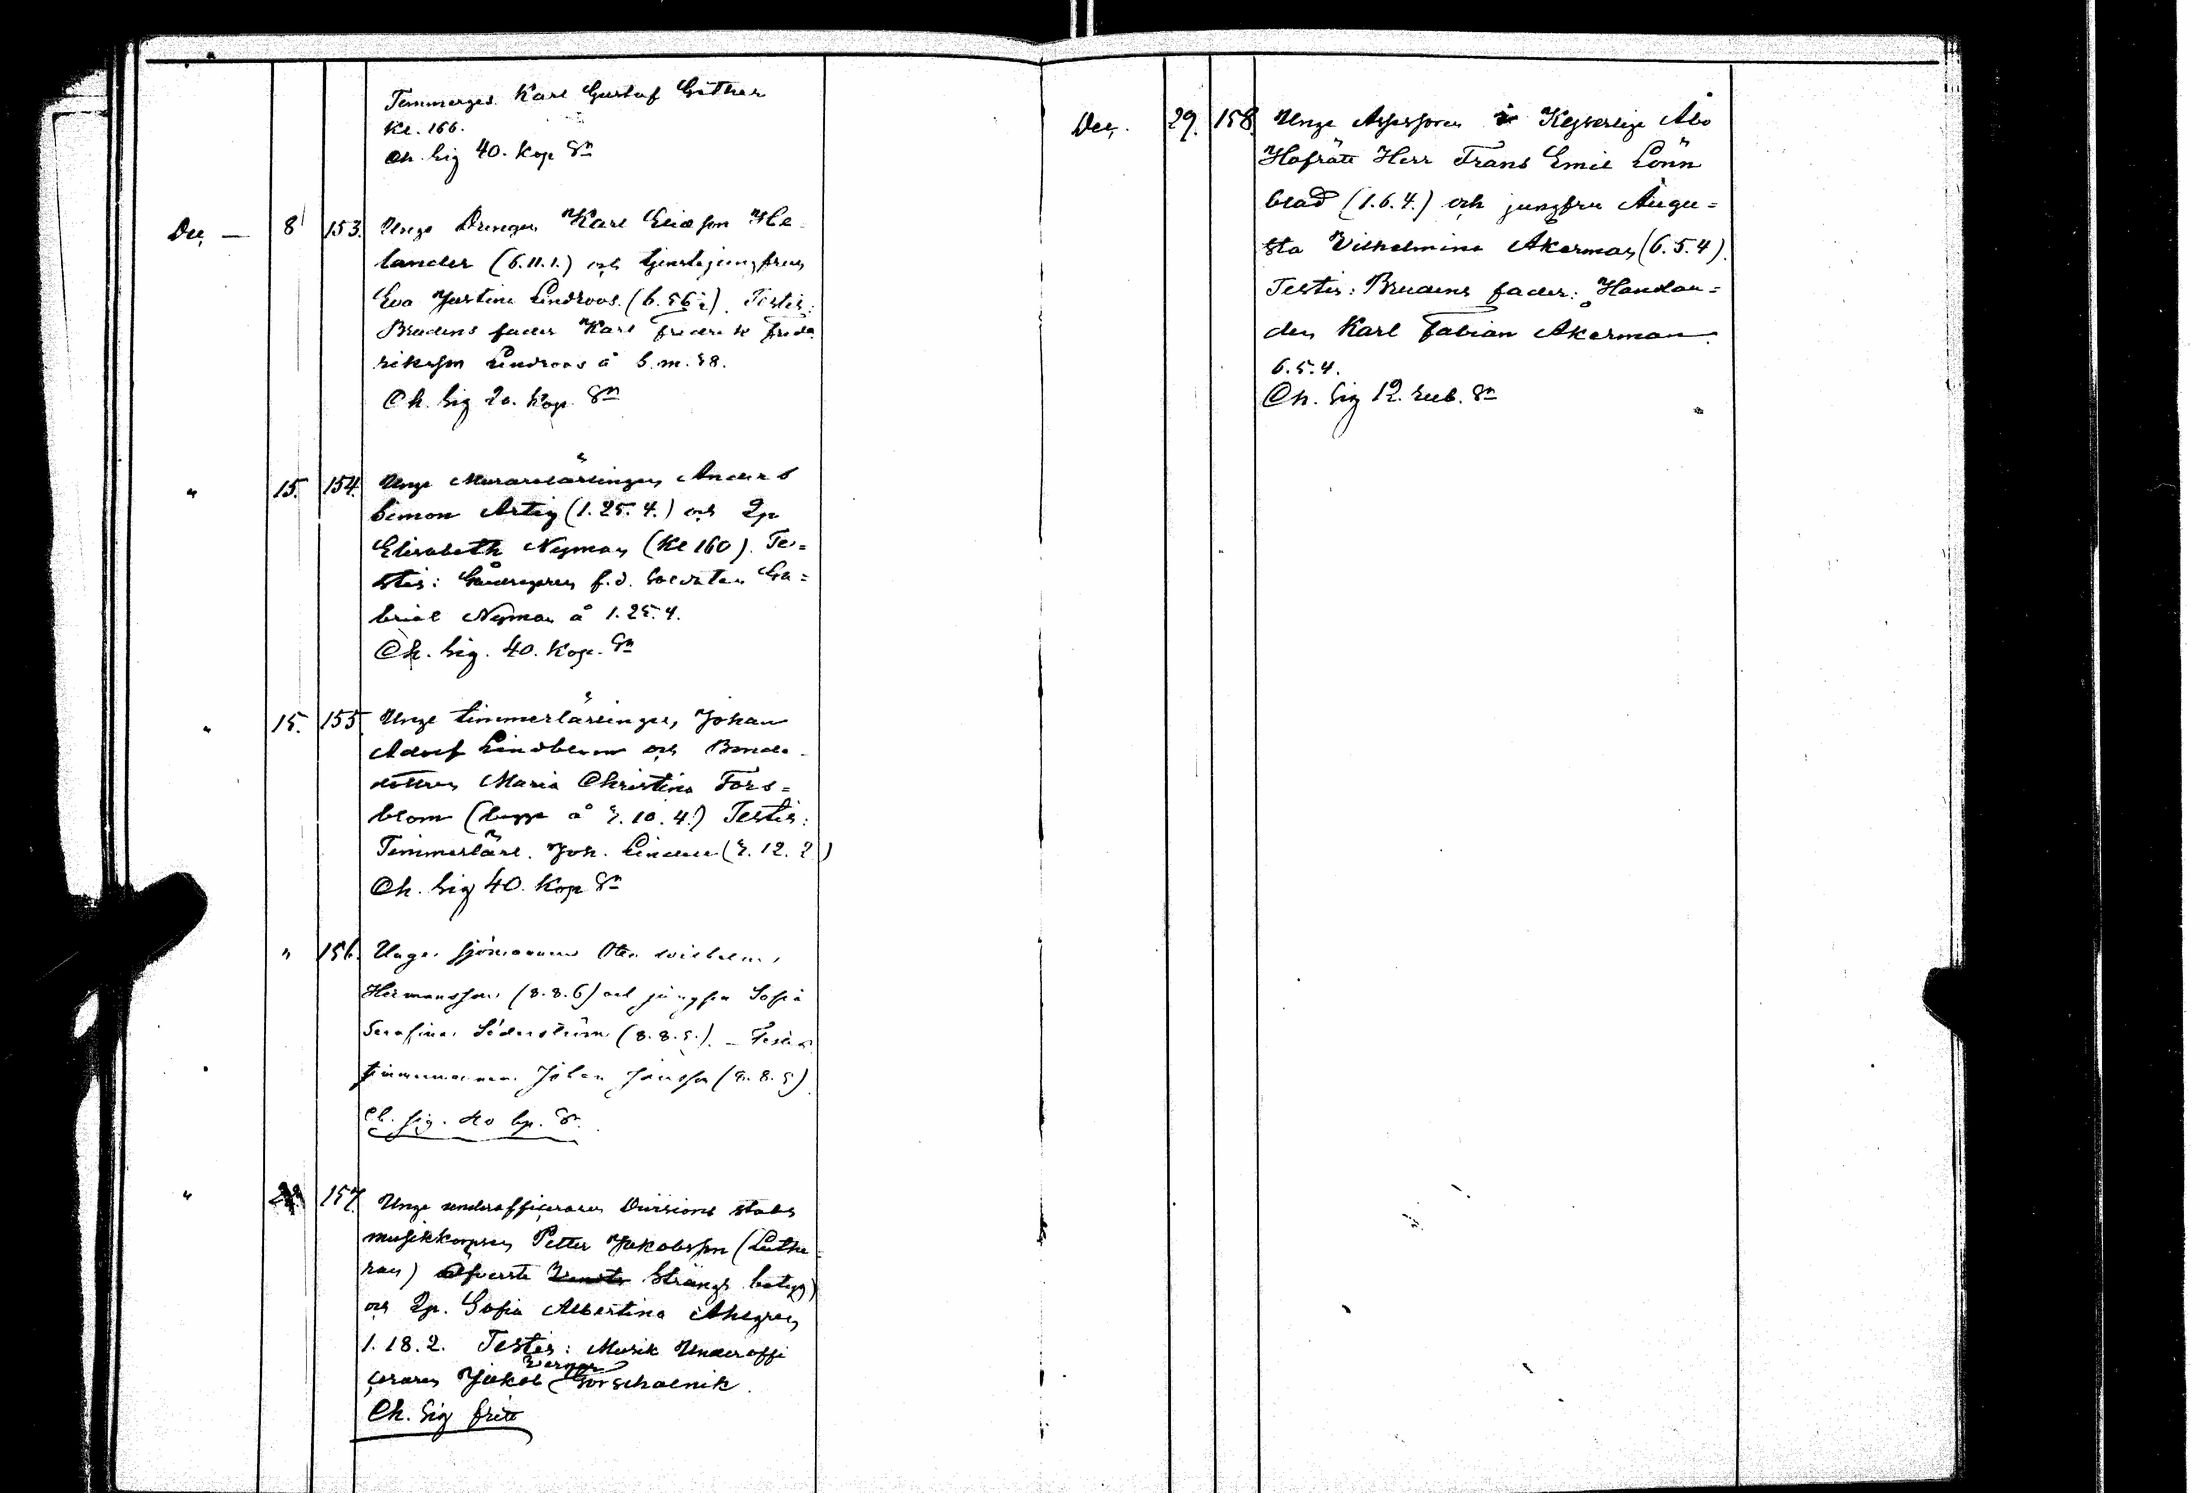 Timmerges. Karl Gustaf Göther
Kl. 166.
Ch. Sig 40. Kop Sr
Dec. — 8 153. Unge Drengen Karl Eliasson He-
lander (6.11.1.) och tjenstejungfrun
Eva Justina Lindroos (6. 56 ). Testis:
Brudens fader Karl Fredrik Fred-
riksson Lindroos å S.m. 58.
Ch. Sig 20. Kop. Sr
" 15. 154. Unge Murarelärlingen Anders
Simon Artig (1. 25. 4.) och Qp
Elisabeth Nyman (Kl 160). Te-
stis: f.d. Soldaten Ga-
briel Nyman å 1. 25. 4.
Ch. Sig. 40. Kop. Sr
" 15. 155. Unge timmerlärlingen Johan
Adolf Lindblom och Bonde-
dottren Maria Christina Fors-
blom (begge å 7. 10. 4.) Testis:
Timmerlärl. Joh. Linden (7. 12. 2)
Ch. Sig 40. Kop Sr
" 156. Unge sjömannen Otto Wilhelm
Hermansson (8. 8. 6) och jungfru Sofia
Serafina Söderström (8. 8. 5.). – Testis
timmermannen Johan Jansson (8. 8. 5)
Ch. Sig. 40 kop. Sr.
" 157. Unge underofficeraren Divisions stabs
musikkorpsen Petter Jakobsson (Luthe-
ran) Strångs betyg)
och Qp. Sofia Albertina Ahlgren
1. 18. 2. Testis: Musik Underoffi
Werner
ceraren Jakob Gorschalnik.
Ch. Sig fritt
Dec. 29. 158. Unge Assessoren i Kejserliga Åbo
Hofrätt Herr Frans Emil Lönn
blad (1. 6. 4.) och jungfru Augu-
sta Vilhelmina Åkerman (6. 5. 4).
Testis: Brudens fader: Handlan-
den Karl Fabian Åkerman
6. 5. 4.
Ch. Sig 12. rub. Sr